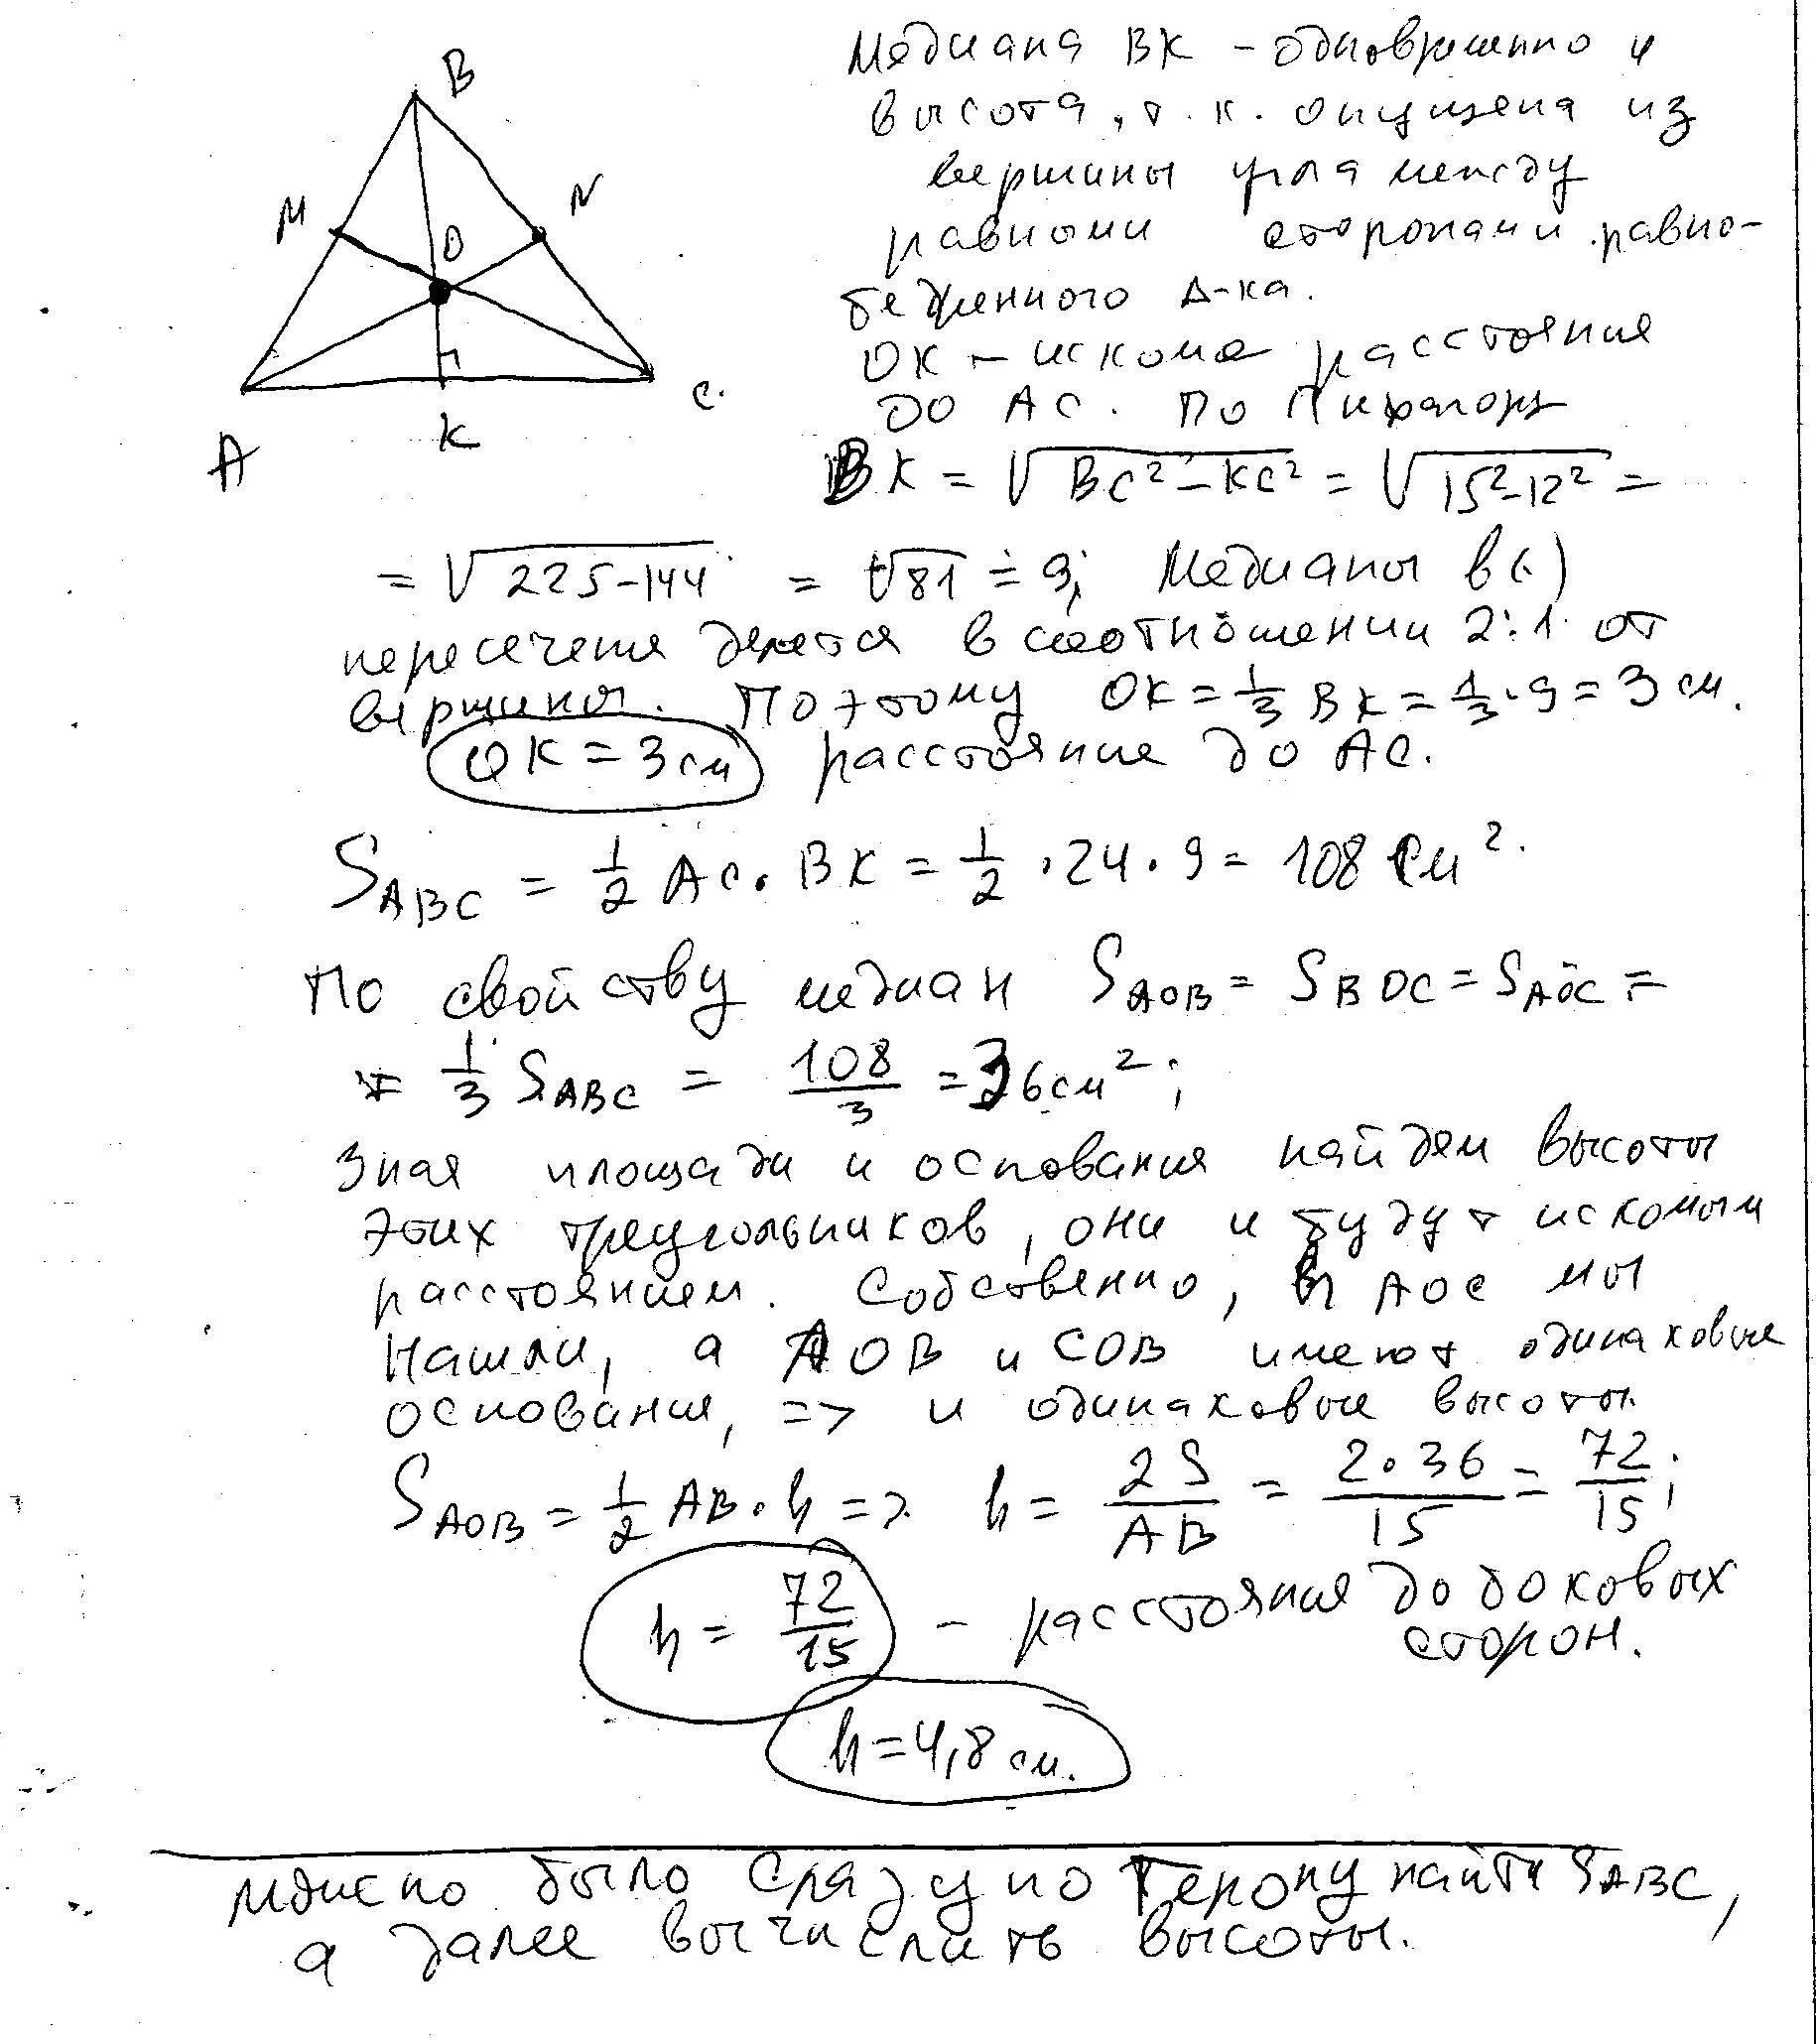 B
M
N
O
A
K
C.
Медиана ВК - одновременно и
высота, т.к. опущена из
вершины угла между
равными сторонами равно-
бедренного Δ-ка.
ОК - искомое расстояние
до АС. По Пифагору
BK = √(BC² - KC²) = √(15² - 12²) =
= √(225-144) = √81 = 9; Медианы в (·)
пересечения делятся в соотношении 2:1 от
вершины. Поэтому OK = 1/3 BK = 1/3 · 9 = 3 см.
OK = 3 см расстояние до АС.
S_ABC = 1/2 AC · BK = 1/2 · 24 · 9 = 108 см².
По свойству медиан S_AOB = S_BOC = S_AOC =
= 1/3 S_ABC = 108/3 = 36 см²;
Зная площади и основания найдем высоты
этих треугольников, они и будут искомым
расстоянием. Собственно, в AOC мы
нашли, а AOB и COB имеют одинаковые
основания, => и одинаковые высоты.
S_AOB = 1/2 AB · h => h = 2S/AB = 2·36/15 = 72/15;
h = 72/15 - расстояние до боковых
сторон.
h = 4,8 см.
Можно было сразу по Герону найти S_ABC,
а далее вычислить высоты.